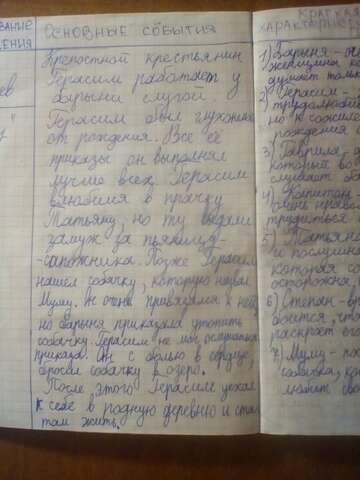 ВАНИЕ
ДЕНИЯ
ев
ОСНОВНЫЕ СОБЫТИЯ
Крепостной крестьянин
Герасим работает у
барыни слугой.
Герасим был глухонемым
от рождения. Все её
приказы он выполнял
лучше всех. Герасим
влюбился в прачку
Татьяну, но ту выдали
замуж за пьяницу-
-сапожника. Позже Герасим
нашел собачку, которую назвал
Муму. Он очень привязался к ней,
но барыня приказала утопить
собачку. Герасим не мог ослушаться
приказа. Он с болью в сердце
бросил собачку в озеро.
После этого Герасим уехал
к себе в родную деревню и стал
там жить.
КРАТКАЯ
ХАРАКТЕРИС
1) Барыня -
женщина, ко
думает только
2) Герасим -
трудолюбив
но к сожале
рождения
3) Гаврила -
который во
слушает ба
4) Капитон
очень
трудиться
5) Татьяна
и послушна
которая
осторожна
6) Степан -
боится, что
раскроет его
7) Муму -
собачка, ко
любит сво